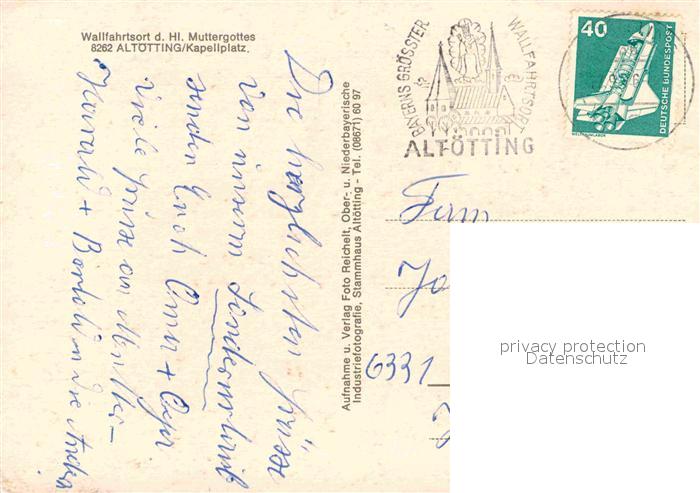 Wallfahrtsort d. Hl. Muttergottes
8262 ALTÖTTING/Kapellplatz.
Die herzlichsten Grüsse
von unserm
senden Euch Oma + Opa
Viele Grüsse an
Harald +
Aufnahme u. Verlag Foto Reichelt, Ober- u. Niederbayerische
Industriefotografie, Stammhaus Altötting - Tel. (08671) 60 97
BAYERNS GRÖSSTER WALLFAHRTSORT
ALTÖTTING
40
DEUTSCHE BUNDESPOST
WELTRAUMLABOR
Fam
Jo
6331
privacy protection
Datenschutz